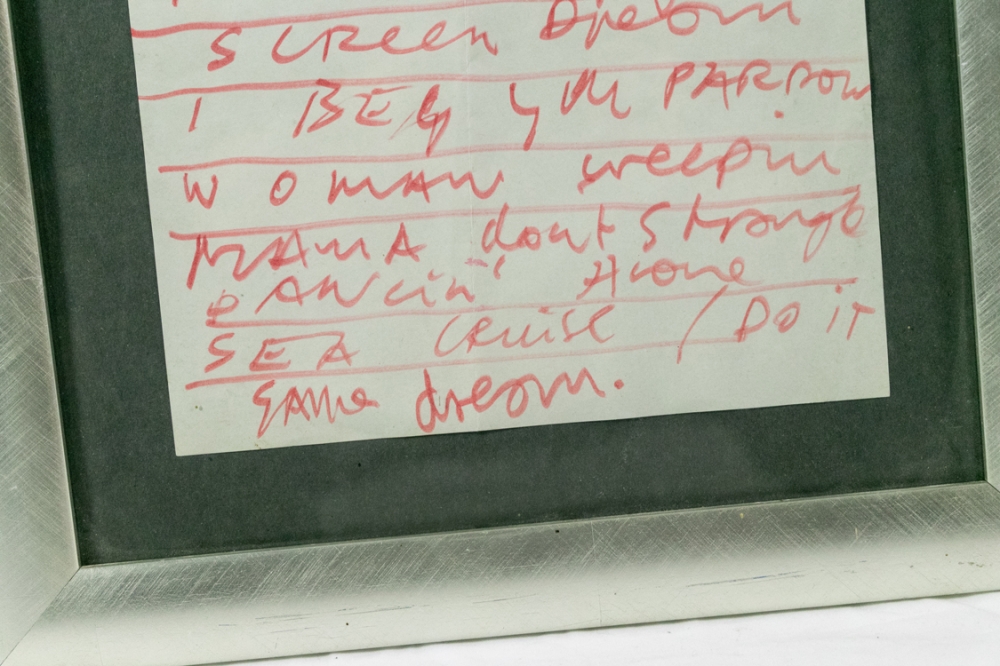 SCREEN Dream
I BEG YUR PARDON
WOMAN weepin
MAMA dont Strangle
DANCin' Alone
SEA CRUISE / DO iT
SAMe dream.